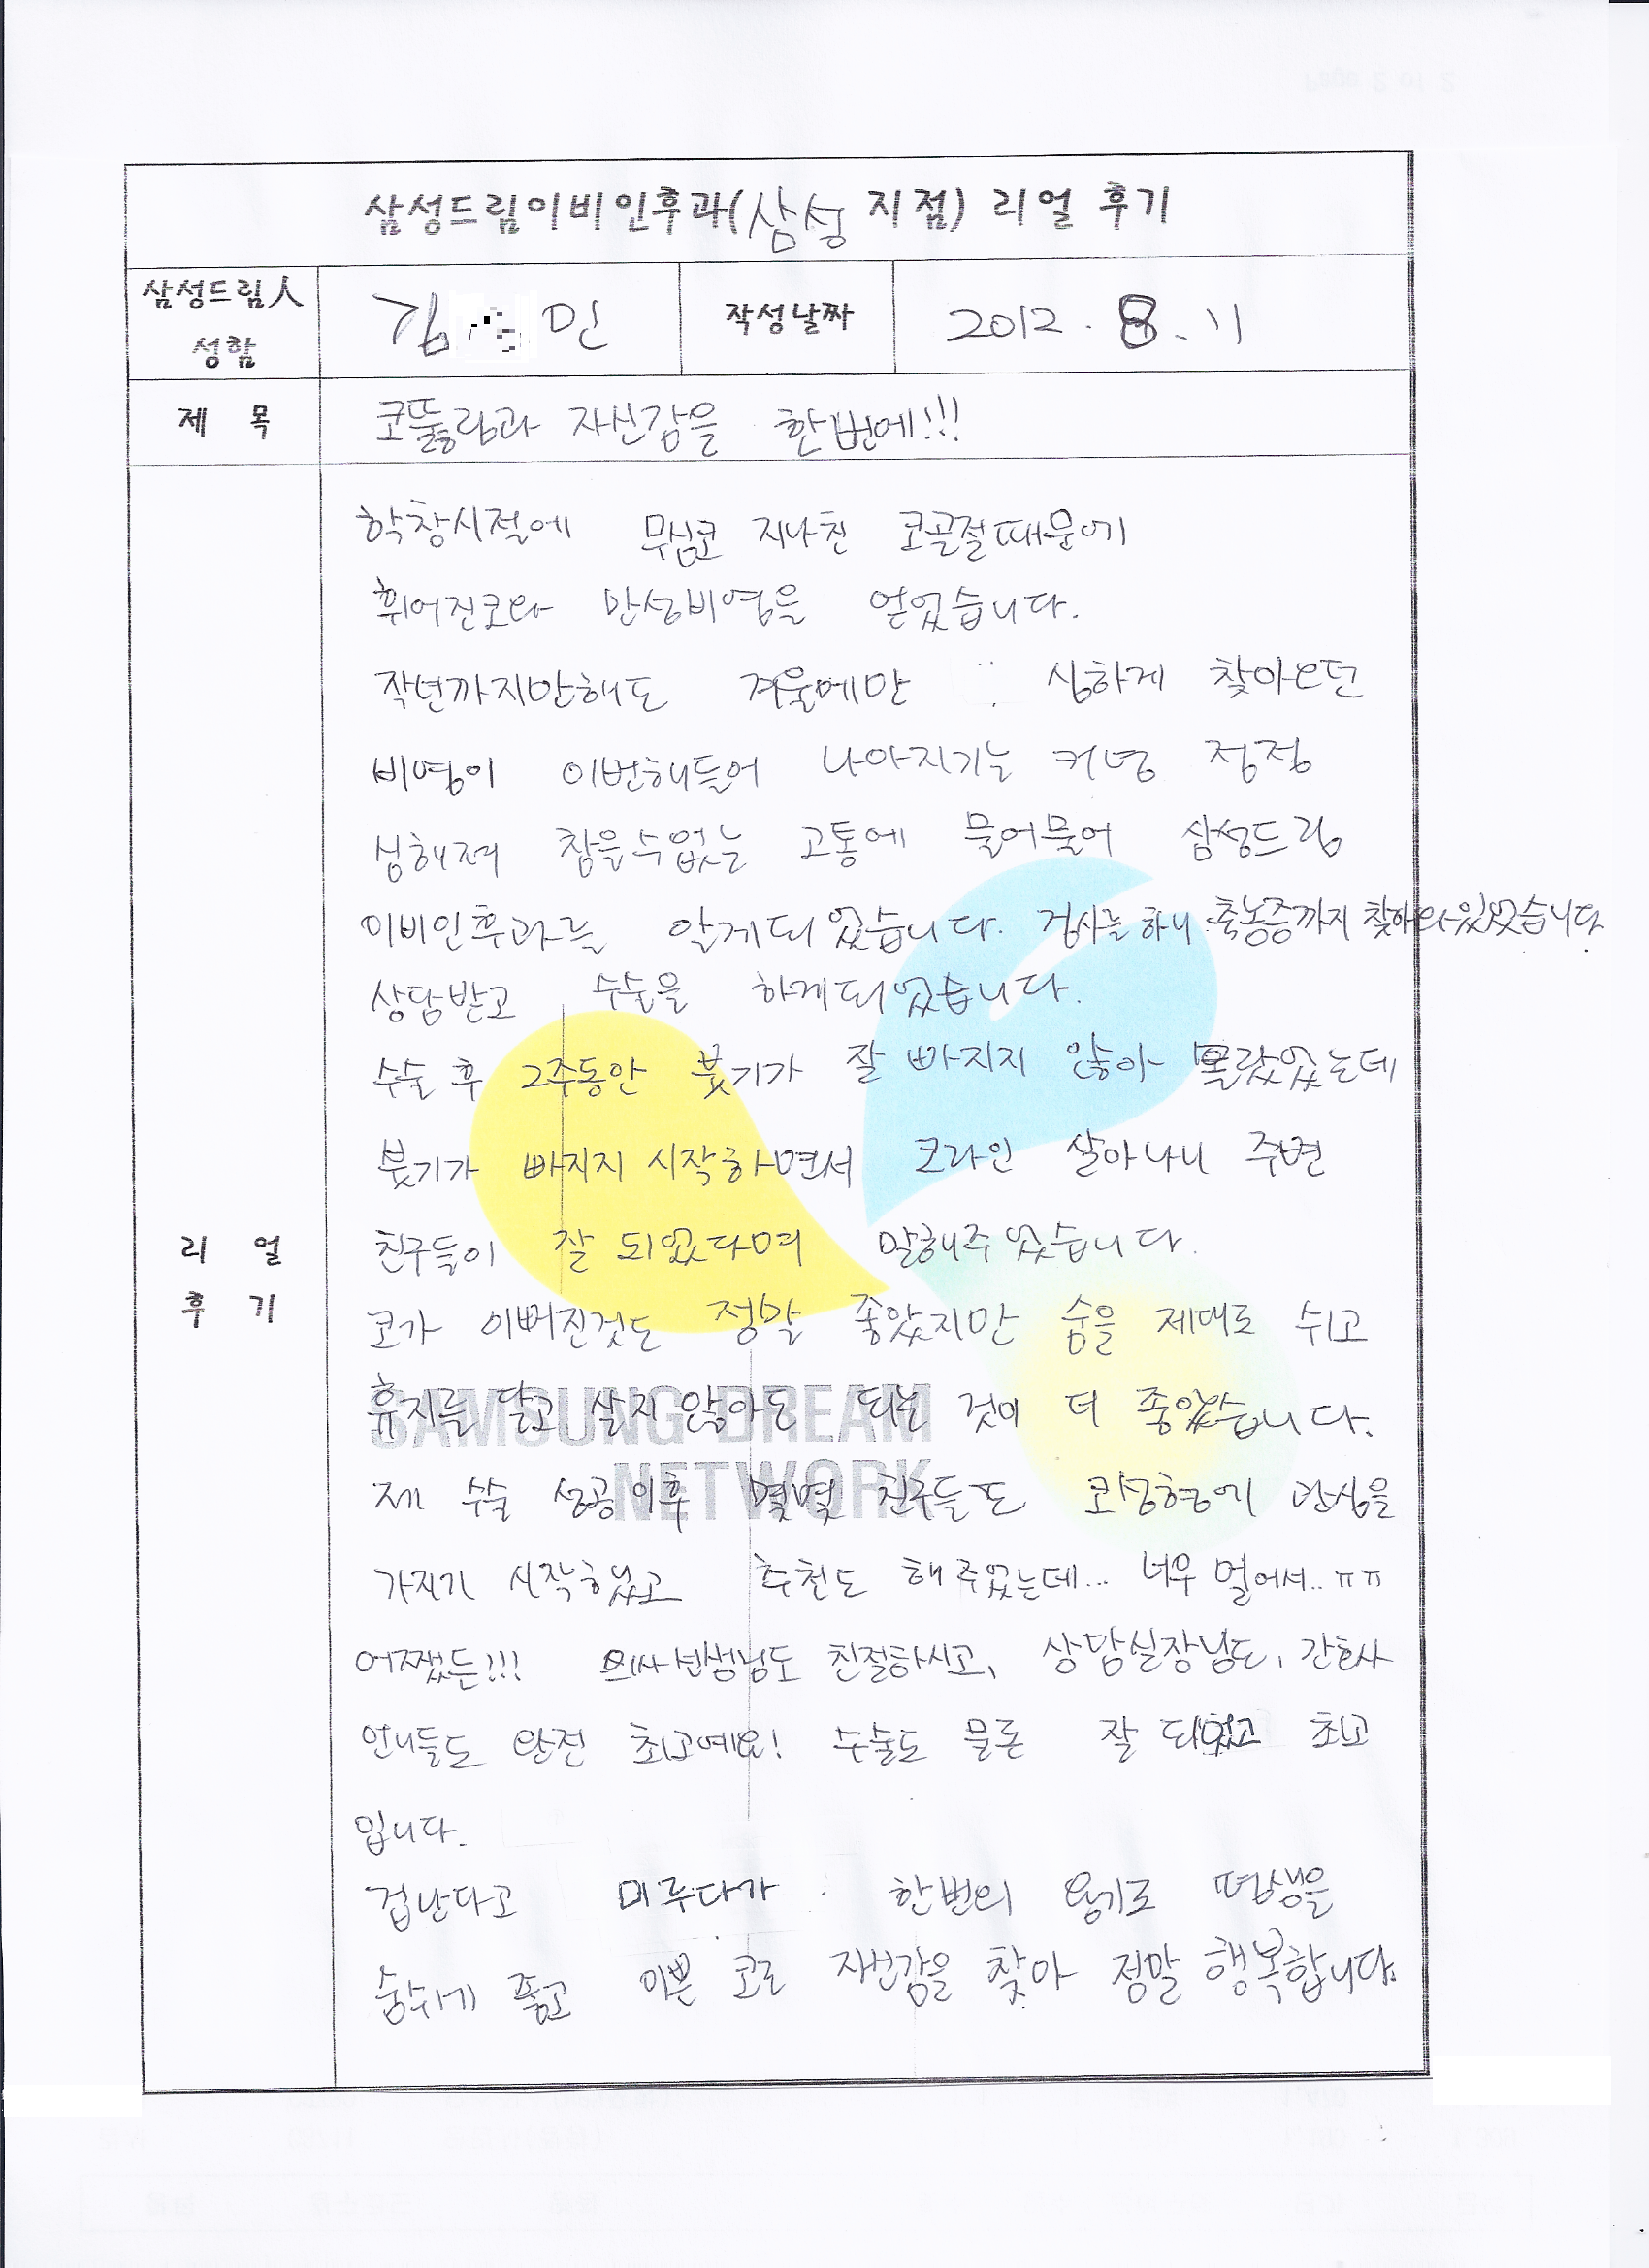 삼성드림이비인후과(삼성 지점) 리얼 후기
삼성드림人
성함
김 민
작성날짜
2012. 8. 11
제 목
코뚫림과 자신감을 한번에!!!
학창시절에 무심코 지나친 코골절때문에
휘어진코와 만성비염을 얻었습니다.
작년까지만해도 겨울에만 심하게 찾아오던
비염이 이번해들어 나아지기는 커녕 점점
심해져 참을수없는 고통에 물어물어 삼성드림
이비인후과를 알게되었습니다. 검사를 하니 축농증까지 찾아와있었습니다
상담받고 수술을 하게되었습니다.
수술 후 2주동안 붓기가 잘 빠지지 않아 몰랐었는데
붓기가 빠지지 시작하면서 코라인 살아나니 주변
친구들이 잘 되었다며 말해주었습니다.
코가 이뻐진것도 정말 좋았지만 숨을 제대로 쉬고
휴지를 달고 살지 않아도 되는 것이 더 좋았습니다.
SAMSUNG DREAM
NETWORK
제 수술 성공이후 몇몇 친구들도 코성형에 관심을
가지기 시작했고 추천도 해주었는데... 너무 멀어서.. ㅠㅠ
어쨌든!!! 의사선생님도 친절하시고, 상담실장님도, 간호사
언니들도 완전 최고예요! 수술도 물론 잘 되었고 최고
입니다.
리 얼
후 기
겁난다고 미루다가 한번의 용기로 평생을
숨쉬기 좋고 이쁜 코로 자신감을 찾아 정말 행복합니다.